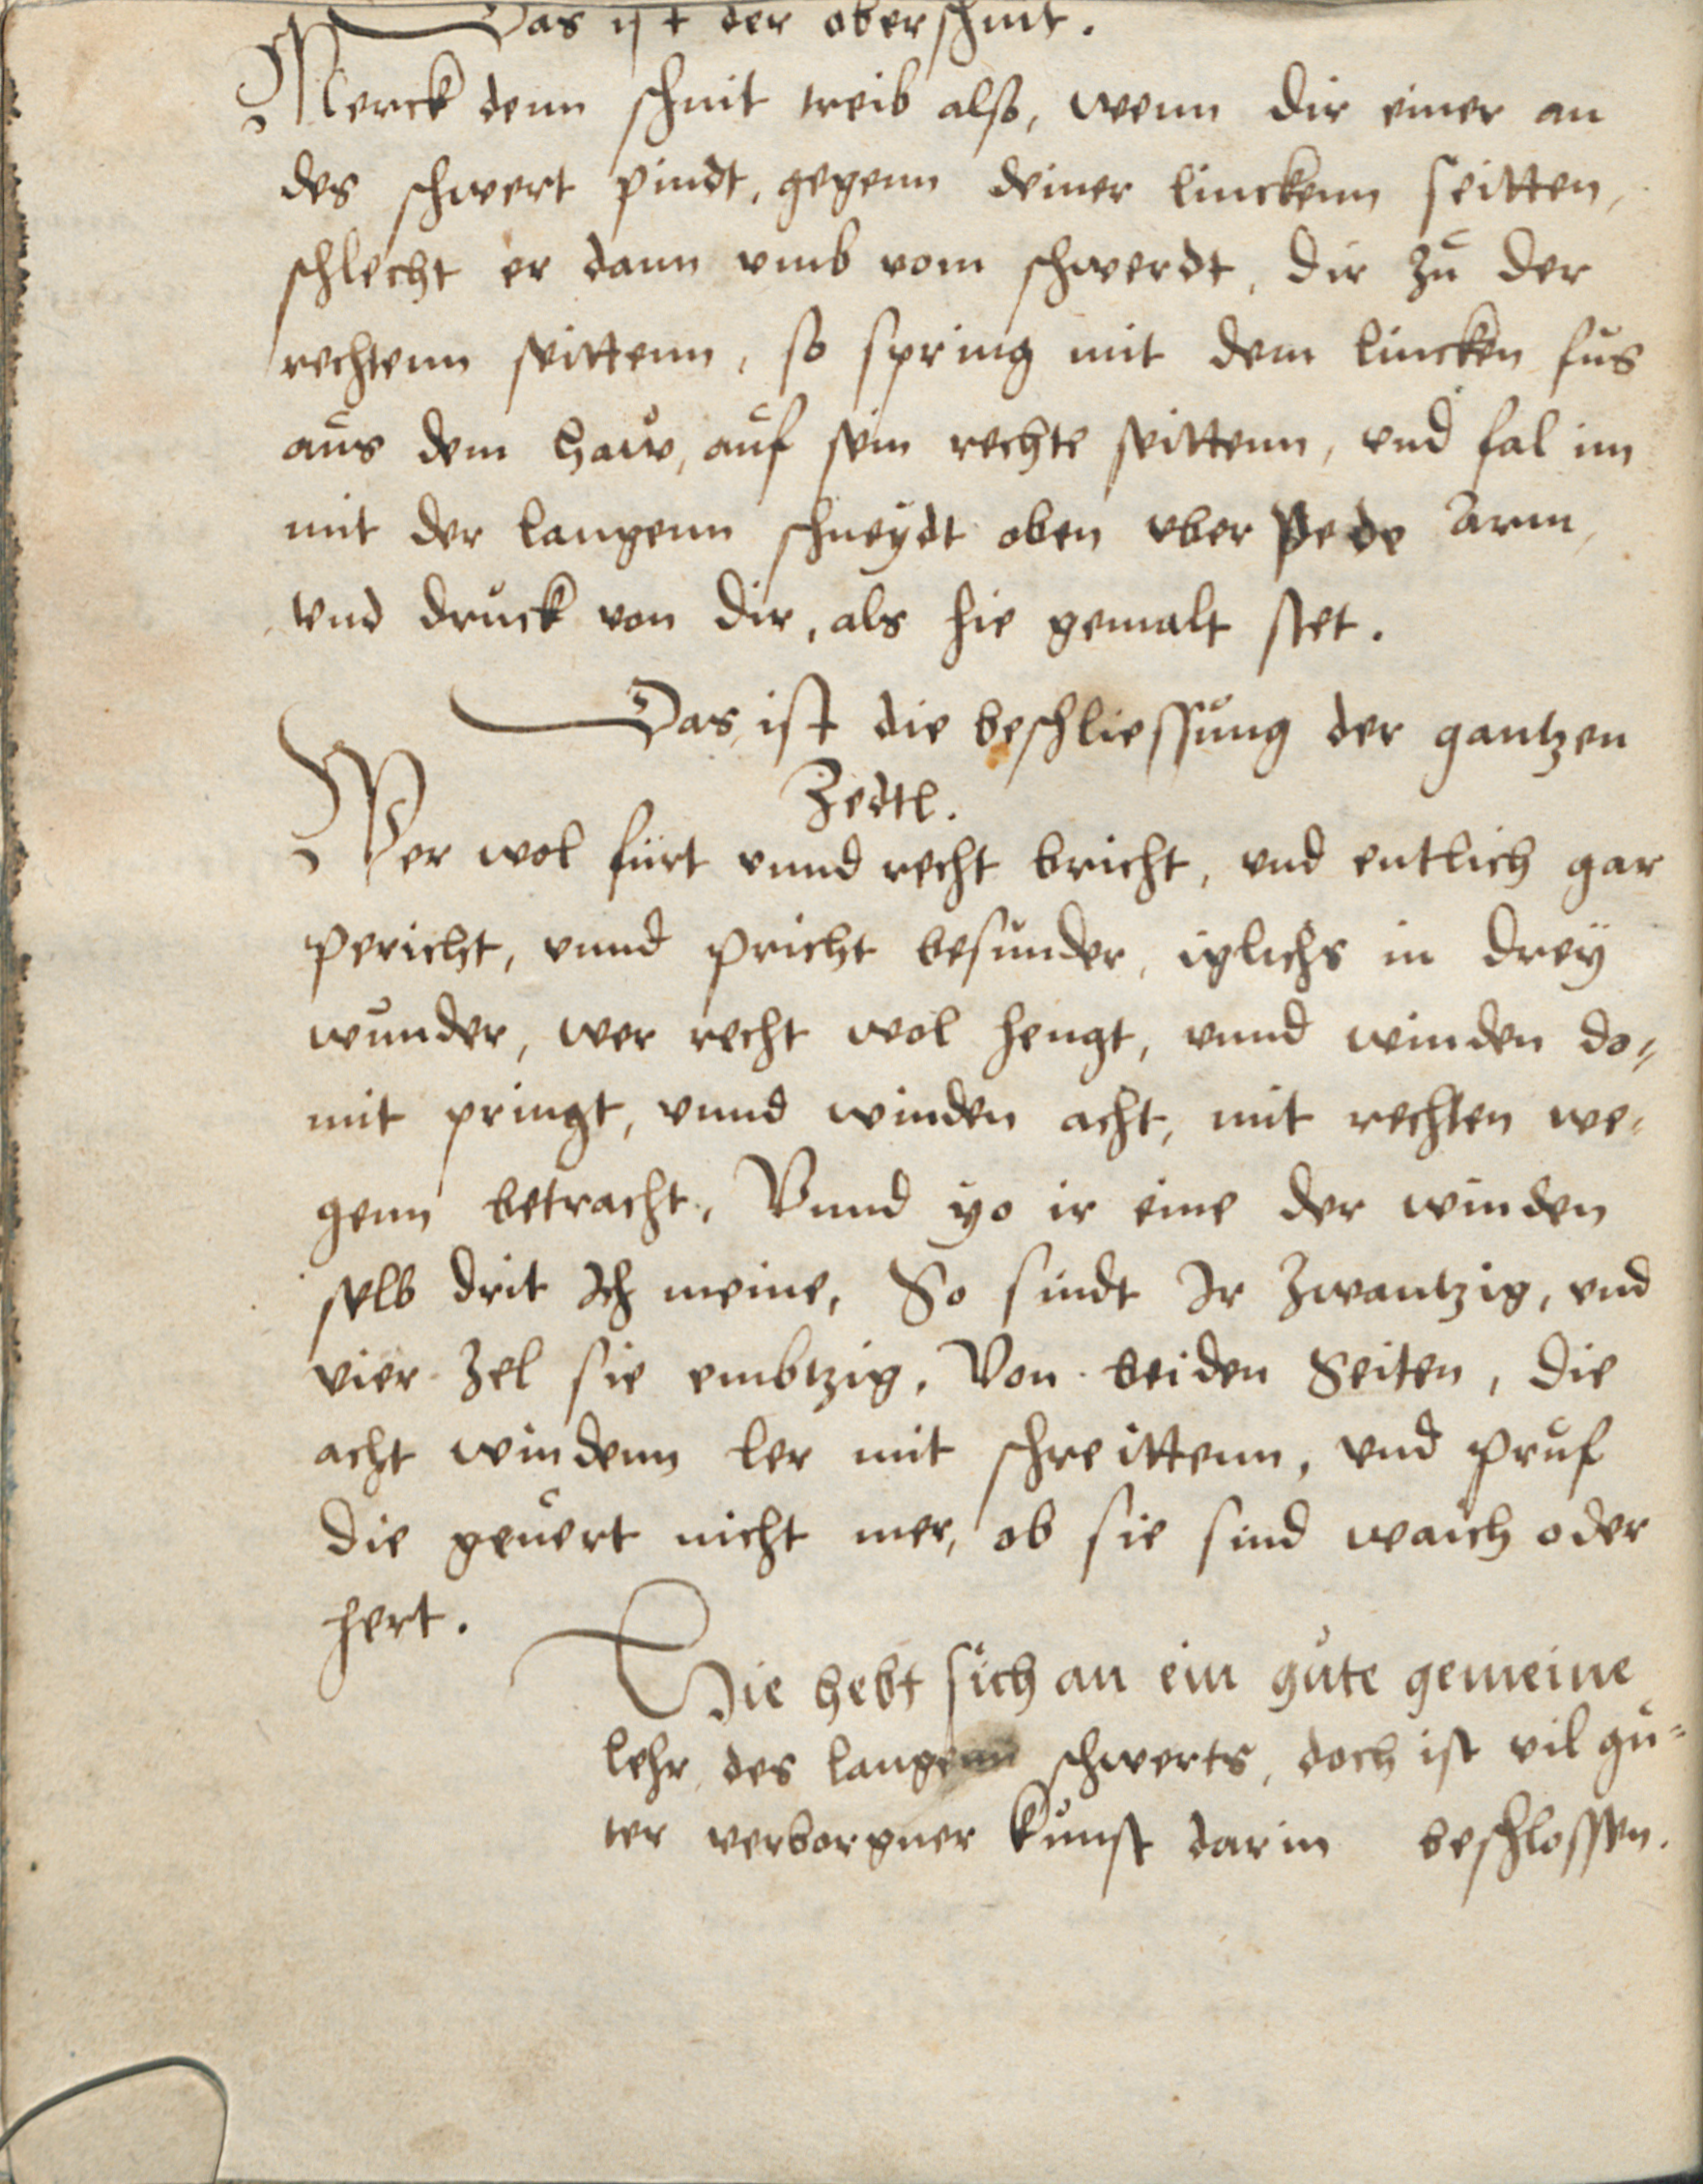 Das ist der oberschnit.
Merck denn schnit treib also, wenn dir einer an
des schwert pindt, gegenn deiner linckenn seitten,
schlecht er dann vmb vom schwerdt, dir zů der
rechtenn seittenn, so spring mit dem lincken fůs
aůs dem haw, aůf sein rechte seittenn, vnd fal im
mit der langenn schneydt oben vber pede Arm,
vnd drůck von dir, als hie gemalt stet.
Das ist die beschliessůng der gantzen
Zedtl.
Wer wol fürt vnnd recht bricht, vnd entlich gar
pericht, vnnd pricht besůnder, iglichs in dreÿ
wůnder, wer recht wol hengt, vnnd winden do=
mit pringt, vnnd winden acht, mit rechten we=
genn betracht, Vnnd yo ir eine der winden
selb drit Ich meine, So sindt Ir Zwantzig, vnd
vier Zel sie embtzig, Von beiden Seiten, die
acht windenn ler mit schreittenn, vnd průf
die geůert nicht mer, ob sie sind waich oder
hert.
Hie hebt sich an ein gůte gemeine
lehr des langenn schwerts, doch ist vil gů=
ter verborgner kůnst darin beschlossen.